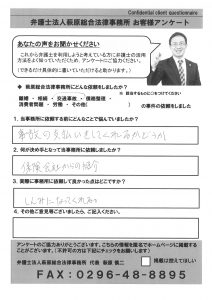 Confidential client questionnaire
弁護士法人萩原総合法律事務所 お客様アンケート
あなたの声をお聞かせください
これから弁護士を利用しようと考えている方に弁護士の活用
方法をよく知っていただくため、アンケートにご協力ください。
(できるだけ具体的に書いていただけると助かります。)
◆ 萩原総合法律事務所にどんな依頼をしましたか?
離婚・相続・交通事故・債務整理・
消費者問題・労働・その他( )の事件の依頼をした
1. 当事務所に依頼する前にどんなことで悩んでいましたか?
事故の支払いをしてくれるかどうか
2. 何が決め手となって当事務所に依頼しましたか?
保険会社からの紹介
3. 実際に事務所に依頼して良かった点はどこですか?
しんみになってくれる
4. その他ご意見等ございましたら、ご記入ください。
アンケートのご協力ありがとうございます。こちらの情報を匿名でホームページに掲載する
ことがございます。(不許可の方は下記にチェックをお願いします)
弁護士法人萩原総合法律事務所 代表 萩原 慎二
掲載は控えてほしい
FAX:0296-48-8895